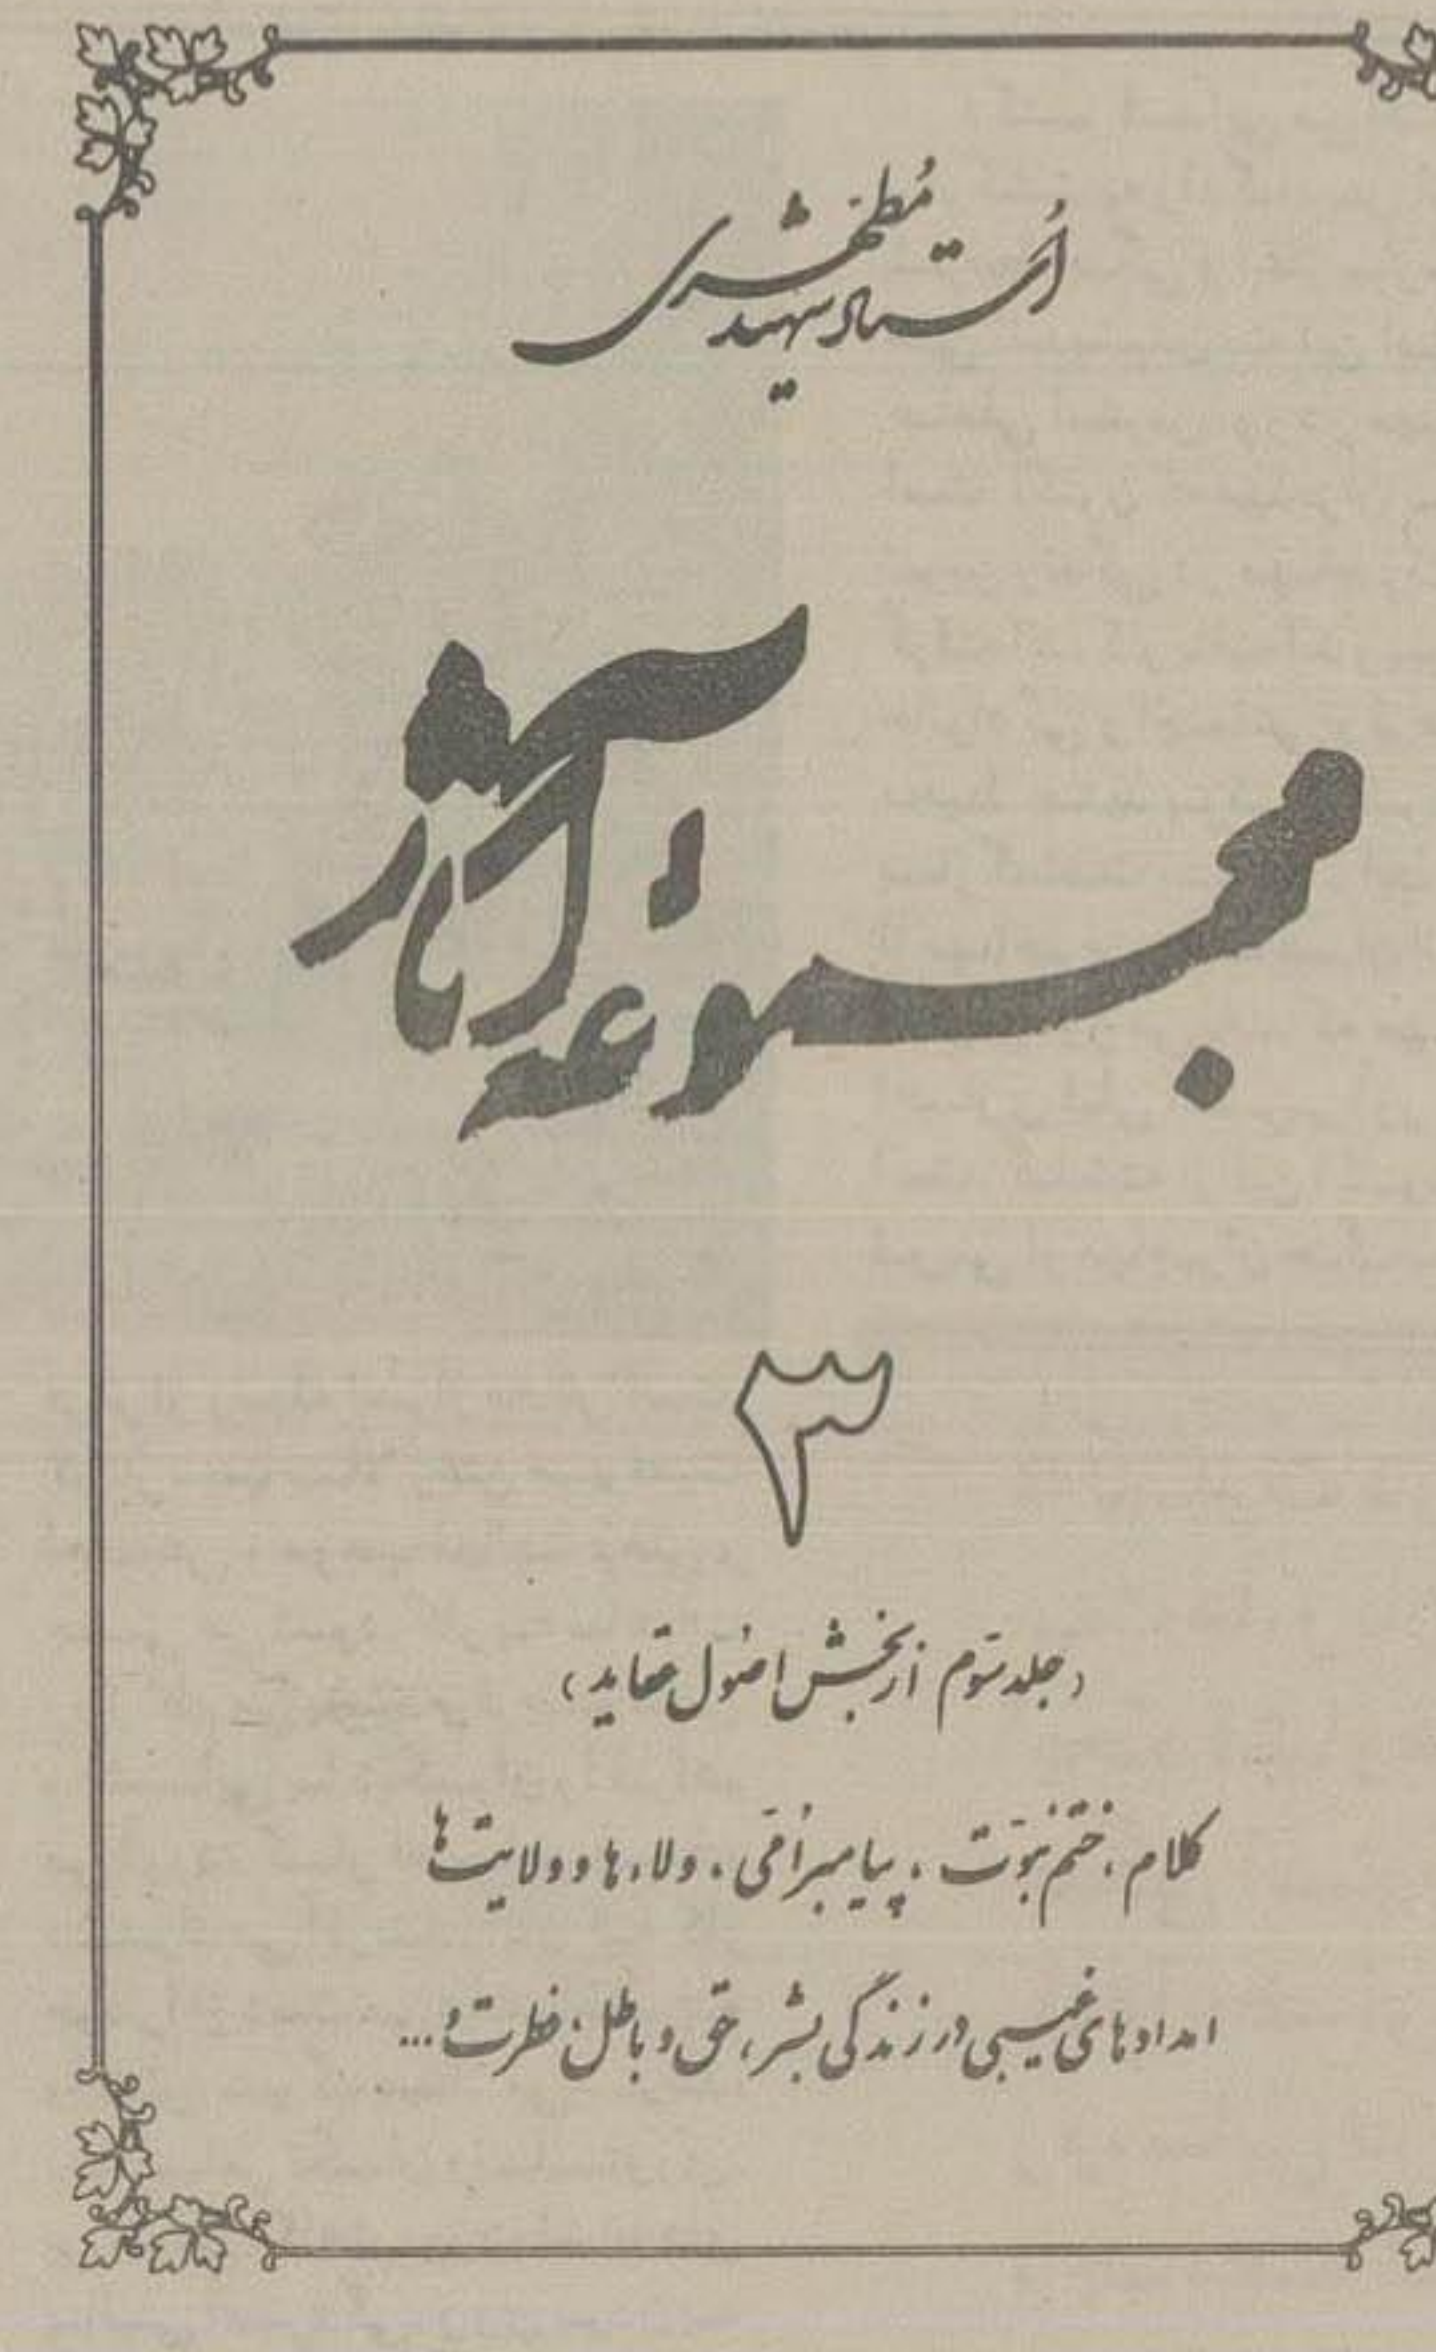 استاد شهید مطهری
مجموعه آثار
۳
(جلد سوم از بخش اصول عقاید)
کلام، ختم نبوّت، پیامبر امّی، ولاءها و ولایت‌ها
امدادهای غیبی در زندگی بشر، حق و باطل، فطرت و...